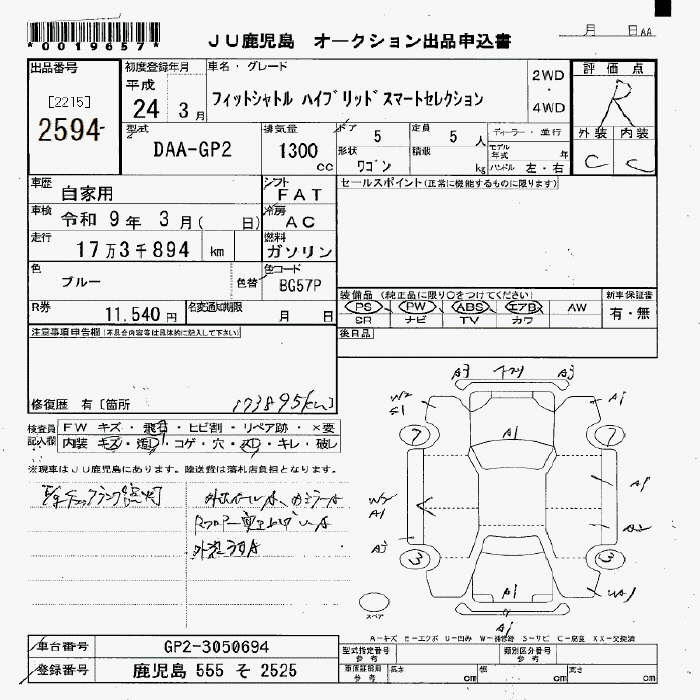 *0019657*
JU鹿児島 オークション出品申込書
月 日 AA
出品番号
[2215]
2594
初度登録年月
平成
24 3月
車名・グレード
フィットシャトル ハイブリッドスマートセレクション
2WD
・
4WD
評価点
R
外装 内装
C C
型式
DAA-GP2
排気量
1300
cc
ドア 5
形状 ワゴン
定員 5 人
積載 kg
ディーラー・並行
モデル年式 年
ハンドル 左・右
車歴 自家用
シフト FAT
セールスポイント(正常に機能するものに限ります)
車検 令和 9年 3月( 日)
冷房 AC
走行 17万3千894 km
燃料 ガソリン
色 ブルー
色替
色コード BG57P
装備品(純正品に限り○をつけてください)
PS PW ABS エアB AW
SR ナビ TV カワ
新車保証書
有・無
R券 11,540円
名変通知期限 月 日
後日品
注意事項申告欄(不具合内容等は具体的に記入して下さい)
修復歴 有[箇所
173895(km)
検査員記入欄
FW キズ・飛石・ヒビ割・リペア跡・×要
内装 キズ・汚レ・コゲ・穴・スレ・キレ・破レ
※現車はJU鹿児島にあります。陸送費は落札店負担となります。
A3 A3
W2
S1
A1
7 7
A1
W2
A1
A1
A2
A2
3 3
A1
WA1
A1
スペア
A-キズ E-エクボ U-凹み W-補修跡 S-サビ C-腐食 XX-交換済
車台番号 GP2-3050694
登録番号 鹿児島 555 そ 2525
型式指定番号 参考
類別区分番号 参考
車庫証明用 参考
長さ cm 幅 cm 高さ cm